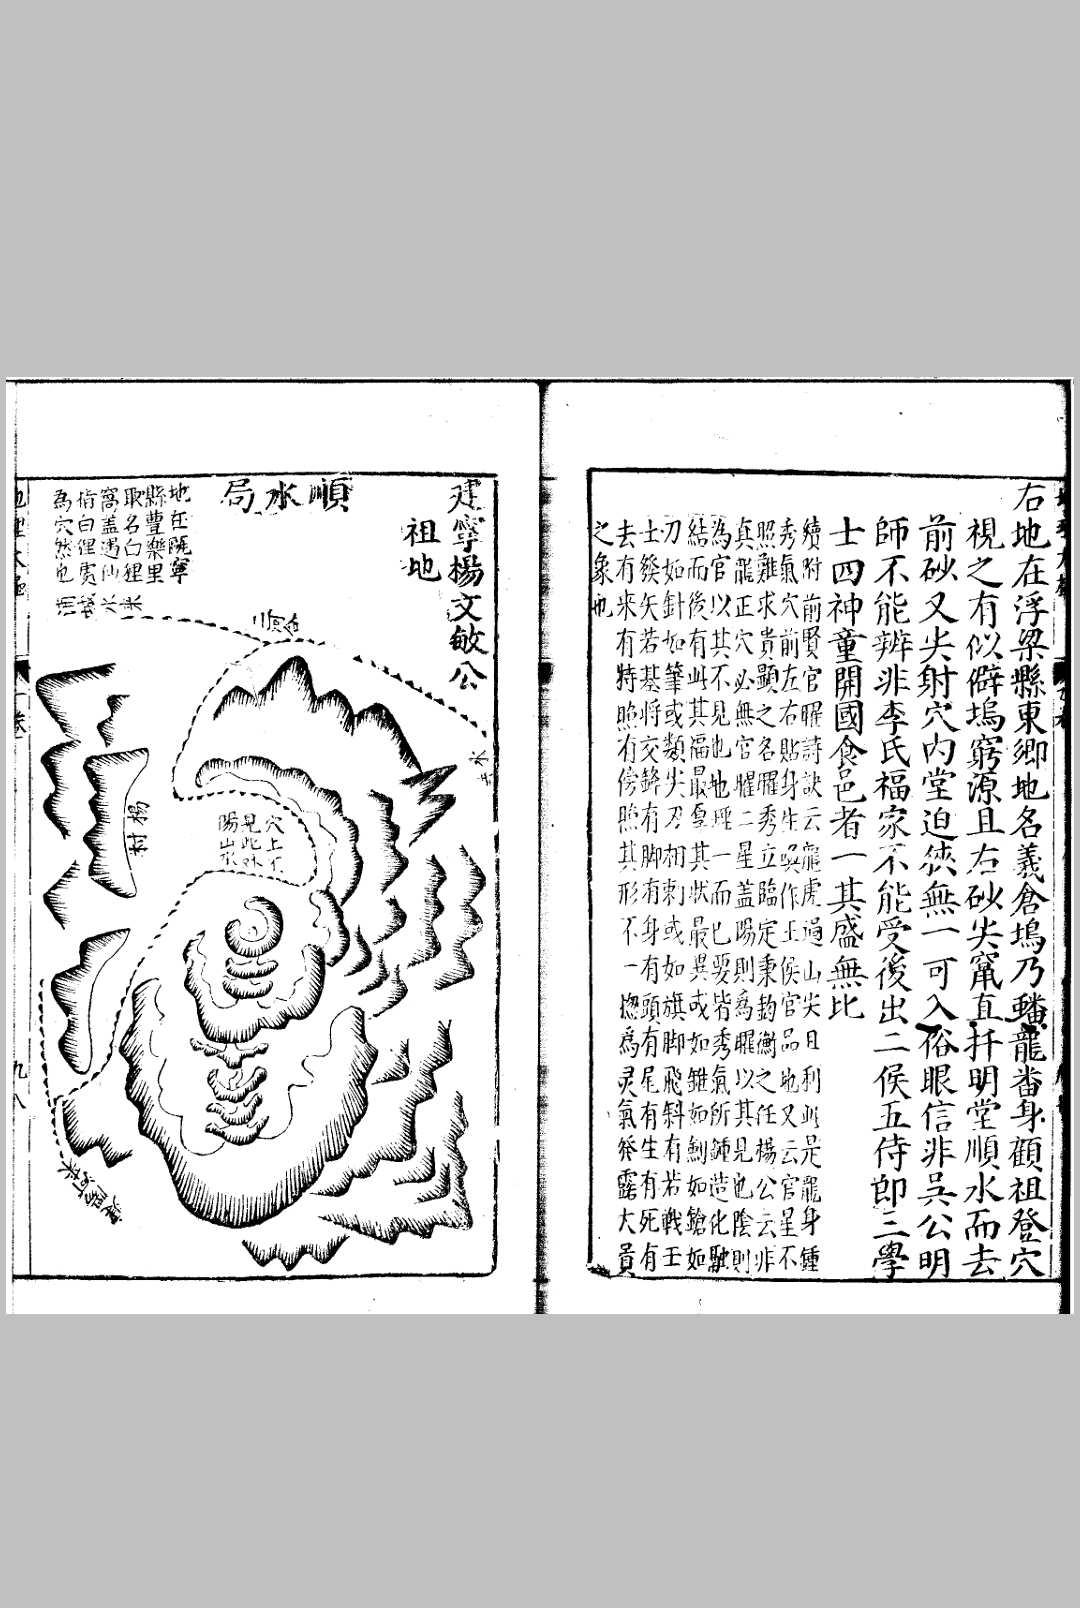 右地在浮梁縣東鄉地名義倉塢乃蟠龍畨身顧祖登穴
視之有似僻塢窮源且右砂尖竄直扦明堂順水而去
前砂又尖射穴内堂迫狹無一可入俗眼信非吳公明
師不能辨非李氏福家不能受後出二侯五侍郎三學
士四神童開國食邑者一其盛無比
續附前賢官曜詩訣云龍虎過山尖日利此是龍身鍾
秀氣穴前左右貼身生喚作王侯官品地又云官星不
照難求貴顯之名曜秀立臨定秉鈞衡之任楊公云非
真龍正穴必無官曜二星蓋陽則為曜以其見也陰則
為官以其不見也地理一而已要皆秀氣所鍾造化融
結而後有此其福最厚其狀最異或如錐如劍如鎗如
刀如針如筆或類尖刀相刺或如旗脚飛斜有若戰士
士發矢若基將交鋒有脚有身有頭有尾有生有死有
去有来有特照有傍照其形不一揔為灵氣發露大貴
之象也
建寧楊文敏公
祖地
順水局
地在甌寧
縣豊樂里
取名白狸
窩蓋遇仙
指白狸
為穴然也
穴上不
見此外
陽山水
楊村
九八